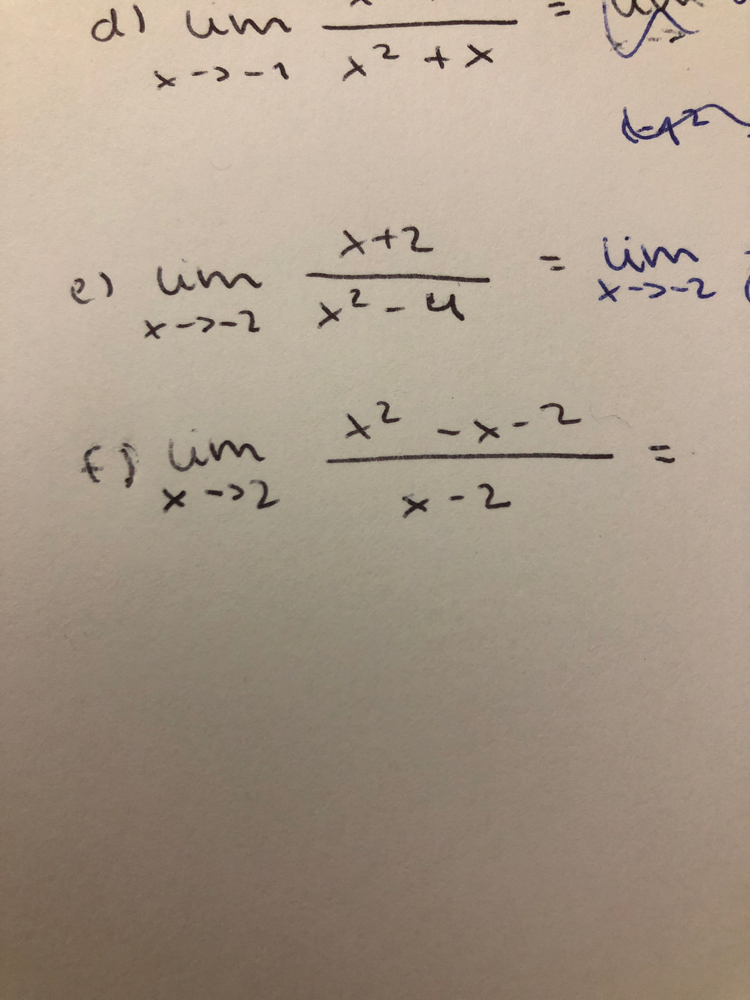 d) lim x→-1 / x² + x =
e) lim x→-2 x+2 / x² - 4 = lim x→-2
f) lim x→2 x² - x - 2 / x - 2 =